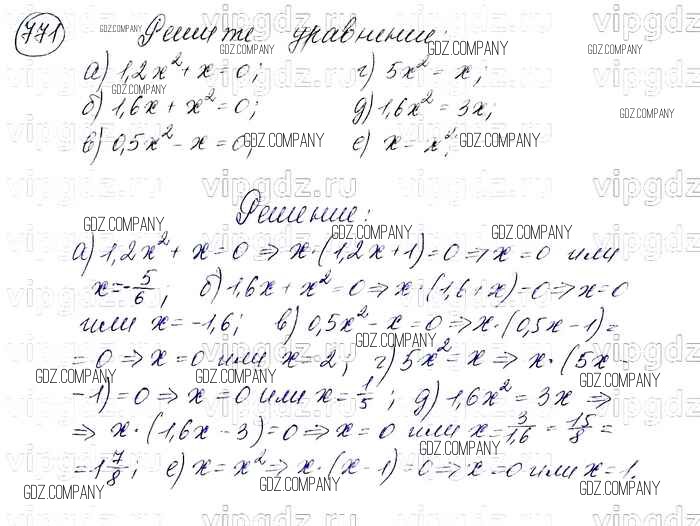 771 Решите уравнение:
а) 1,2x² + x = 0; г) 5x² = x;
б) 1,6x + x² = 0; д) 1,6x² = 3x;
в) 0,5x² - x = 0; е) x = x².
Решение:
а) 1,2x² + x = 0 ⇒ x·(1,2x+1)=0 ⇒ x = 0 или
x = -5/6; б) 1,6x + x² = 0 ⇒ x·(1,6+x)=0 ⇒ x=0
или x = -1,6; в) 0,5x² - x = 0 ⇒ x·(0,5x-1)=
=0 ⇒ x = 0 или x = 2; г) 5x² = x ⇒ x·(5x-
-1)=0 ⇒ x = 0 или x = 1/5; д) 1,6x² = 3x ⇒
⇒ x·(1,6x-3)=0 ⇒ x = 0 или x = 3/1,6 = 15/8 =
= 1 7/8; е) x = x² ⇒ x·(x-1)=0 ⇒ x = 0 или x = 1.